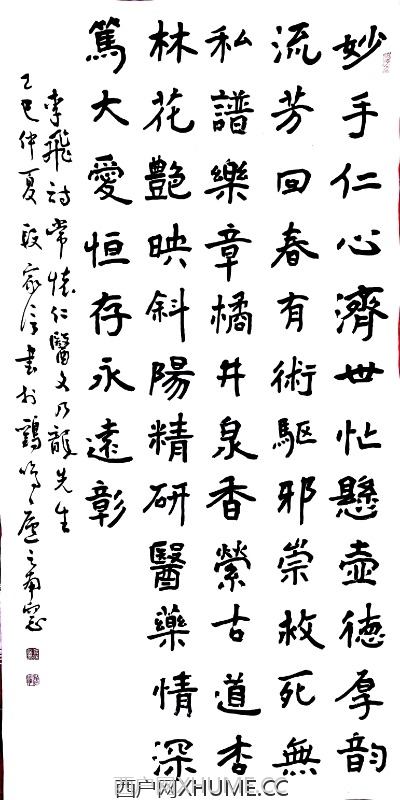 妙手仁心濟世忙懸壺德厚韵
流芳回春有術驅邪祟救死無
私譜樂章橘井泉香縈古道杏
林花艷映斜陽精研醫藥情深
篤大愛恒存永遠彰
李飛詩常懷仁醫文乃龍先生
乙巳仲夏段家信書於鶏鳴廬之南窗
西户网XHUME.CC